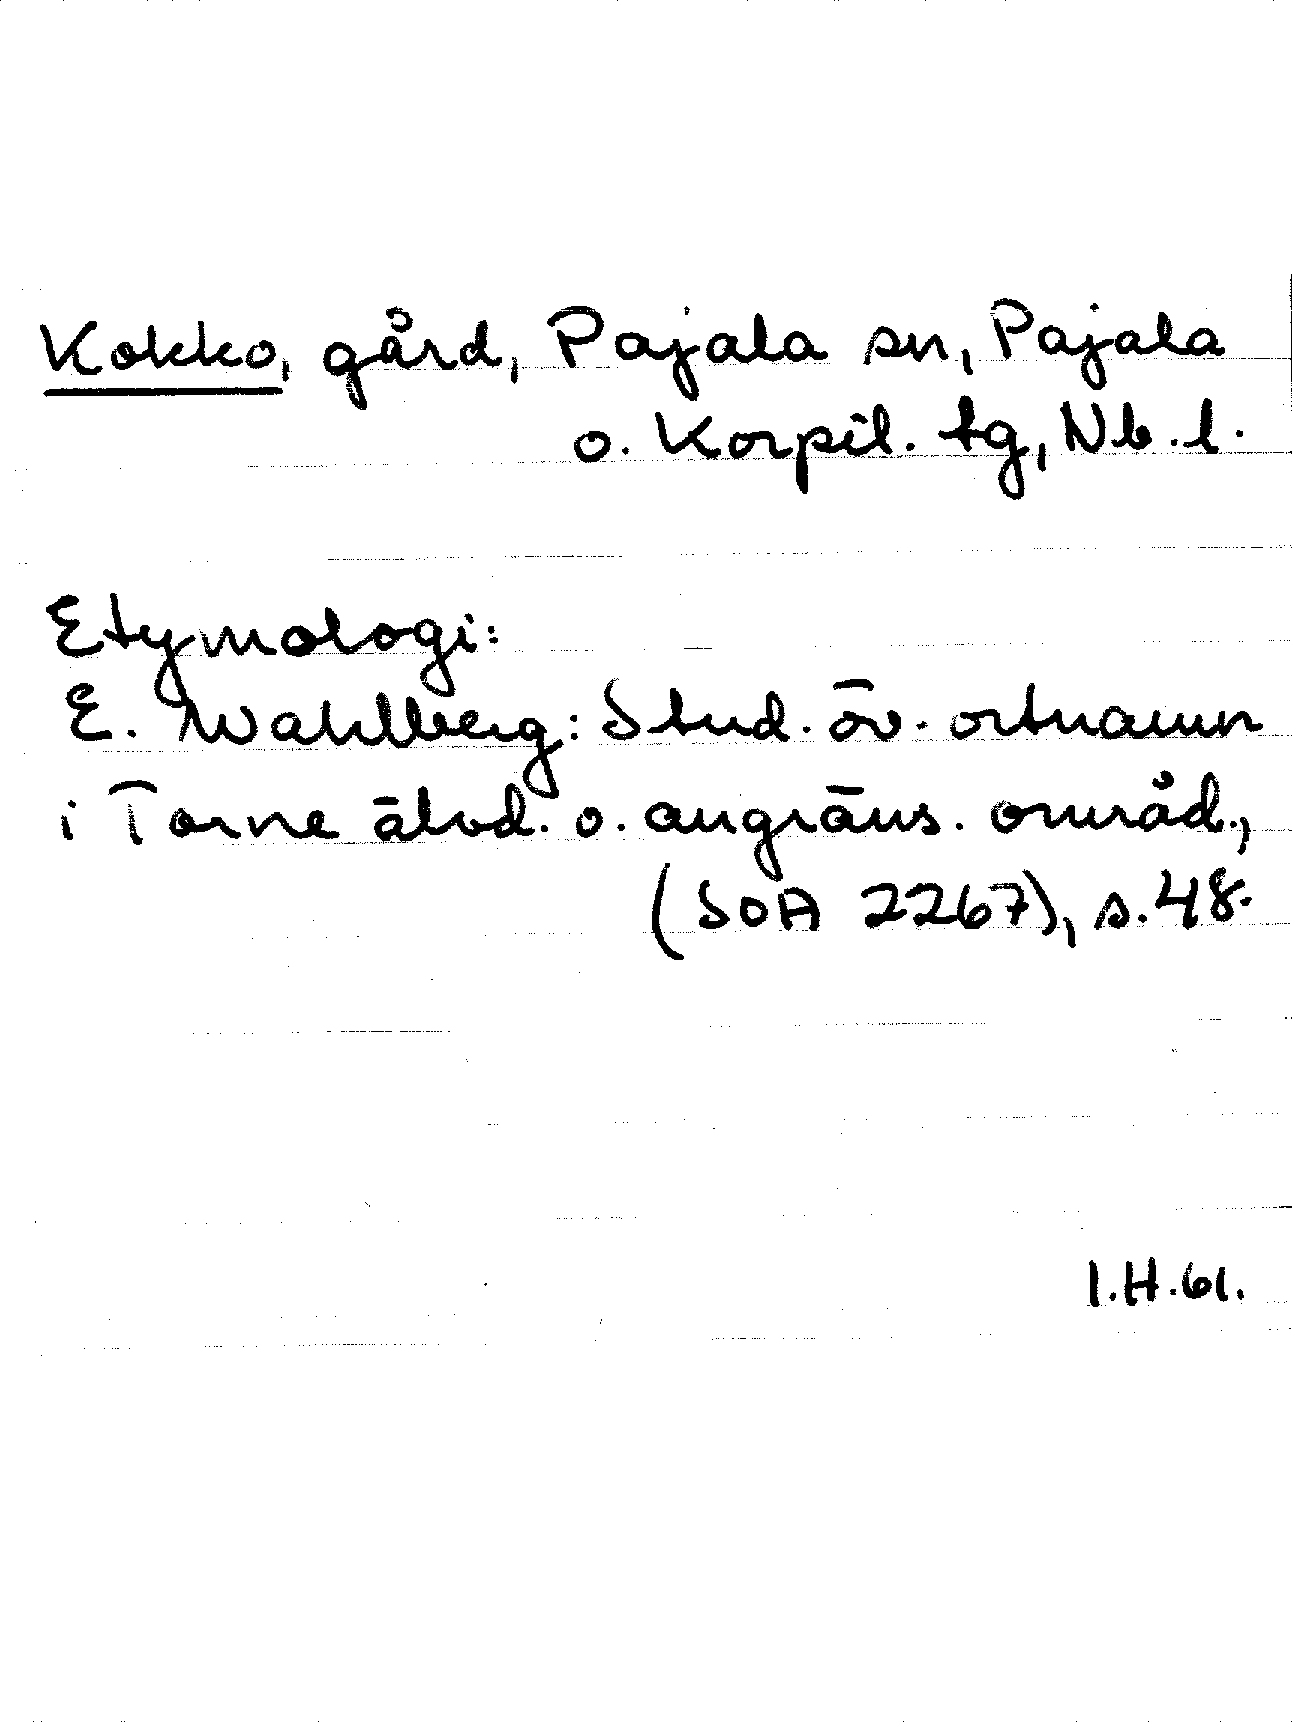 Kokko, gård, Pajala sn, Pajala
o. Korpil. tg, Nb. l.
Etymologi:
E. Wahlberg: Stud. öv. ortnamn
i Torne älvd. o. angräns. områd.,
(SOA 2267), s. 48.
I.H.61.